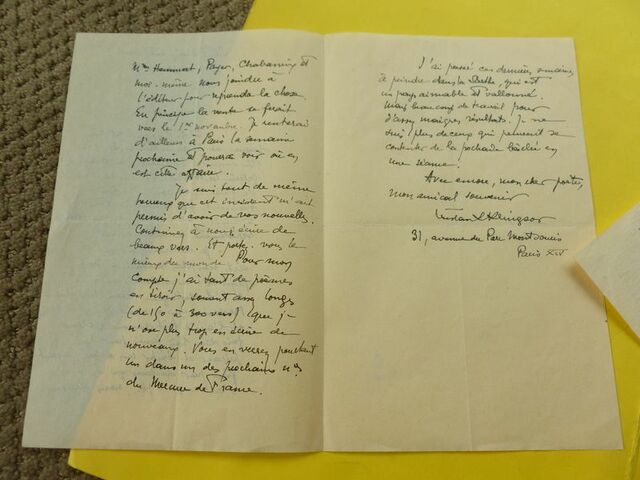 Mrs Hammert, Payer, Chabaneix et
moi-même nous joindre à
l'éditeur pour reprendre la chose.
En principe la vente se ferait
vers le 1er novembre. Je rentrerai
d'ailleurs à Paris la semaine
prochaine et pourrai voir où en
est cette affaire.
Je suis tout de même
heureux que cet incident m'ait
permis d'avoir de vos nouvelles.
Continuez à nous écrire de
beaux vers. Et portez-vous le
mieux du monde. Pour mon
compte j'ai tant de poèmes
en tiroir, souvent assez longs
(de 150 à 300 vers) que je
n'ose plus trop en écrire de
nouveaux. Vous en verrez pourtant
un dans un des prochains nos
du Mercure de France.
J'ai passé ces dernières semaines
à peindre dans la Sarthe, qui est
un pays aimable et vallonné.
Mais beaucoup de travail pour
d'assez maigres résultats. Je ne
suis plus de ceux qui peuvent se
contenter de la pochade bâclée en
une séance.
Avec encore, mon cher poète,
mon amical souvenir
Tristan Klingsor
31, avenue du Parc Montsouris
Paris XIV